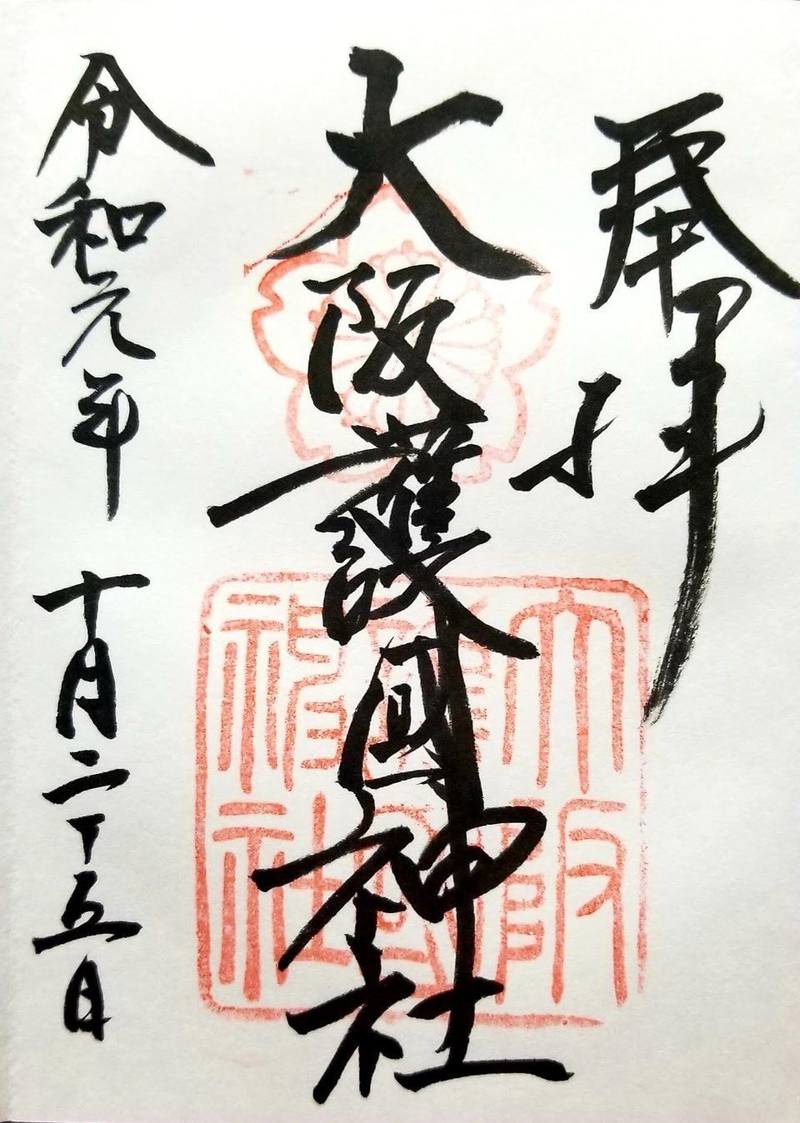 奉拝
大阪護國神社
令和元年十月二十五日
大阪護國神社